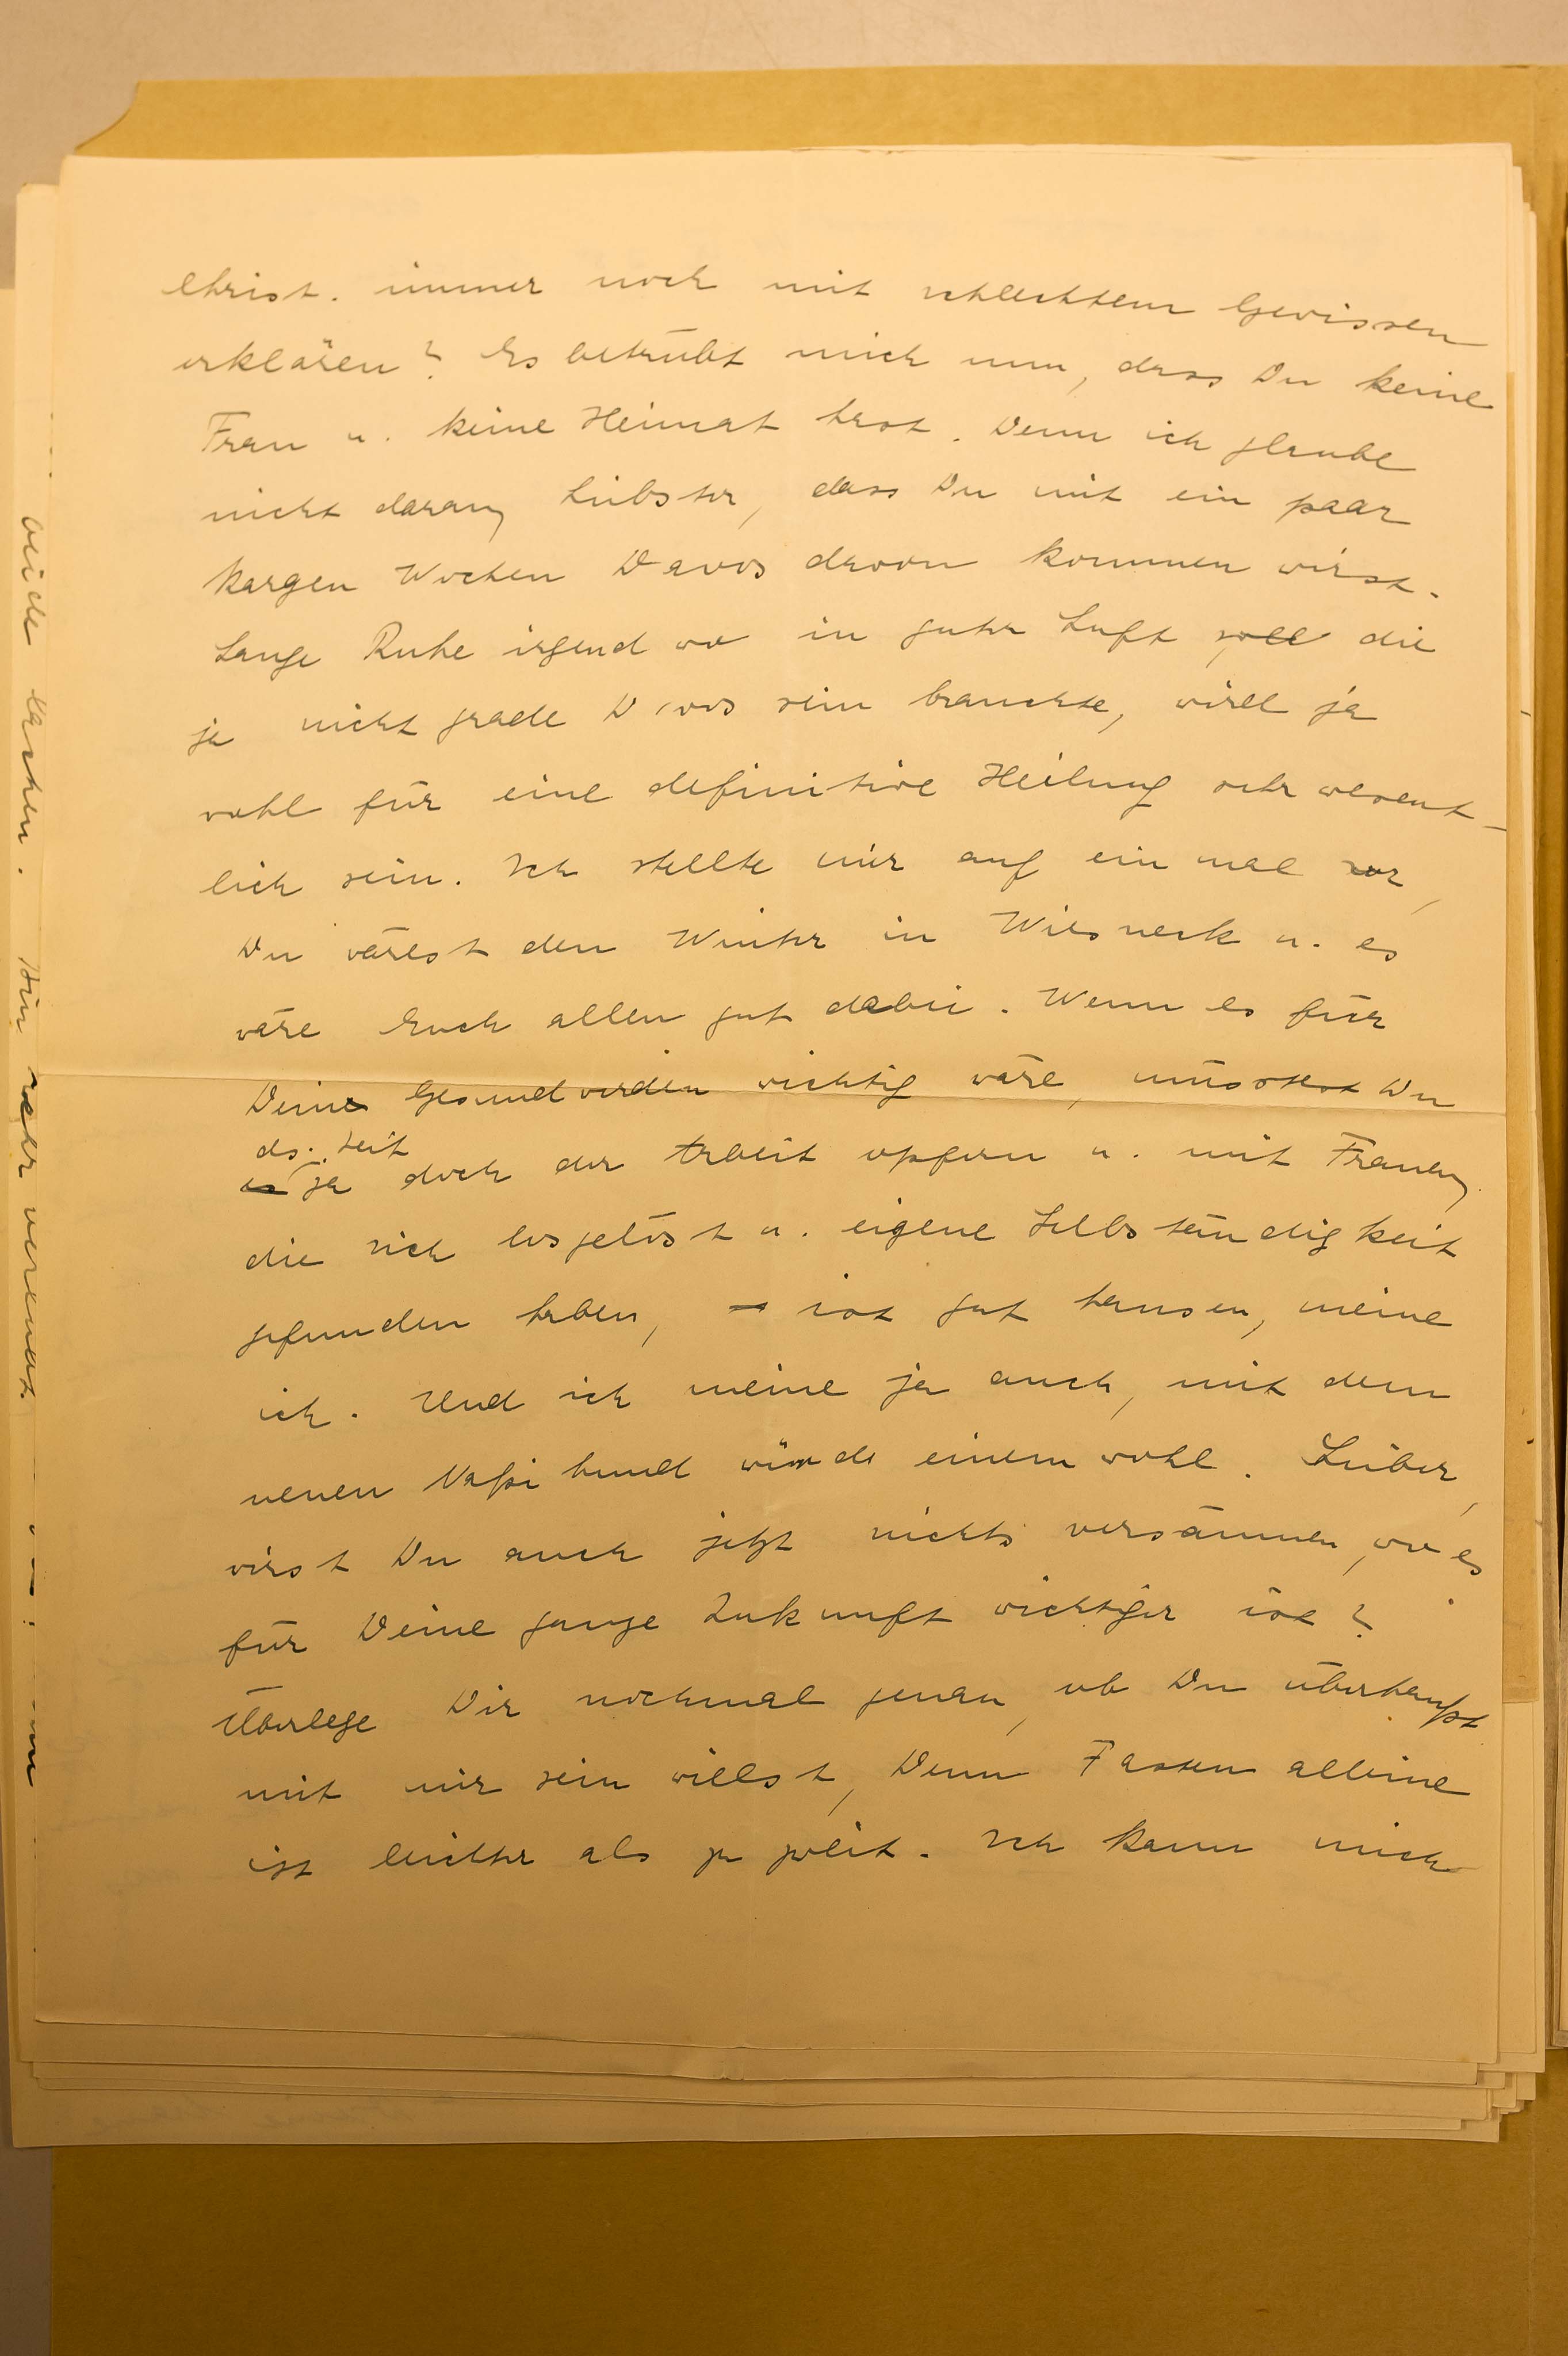 Christ. immer noch mit schlechtem Gewissen
erklären? Es betrübt mich nun, dass Du keine
Frau u. keine Heimat hast. Denn ich glaube
nicht daran, Liebster, dass Du mit ein paar
kargen Wochen Davos davon kommen wirst.
Lange Ruhe irgend wo in guter Luft, soll die
ja nicht grade Davos sein brauchte, wird ja
wohl für eine definitive Heilung sehr wesent-
lich sein. Ich stellte mir auf ein mal vor,
Du wärest den Winter in Wiesneck u. es
wäre Euch allen gut dabei. Wenn es für
Deine Gesundwerden wichtig wäre, müsstest Du
ds. Zeit
ja doch der Arbeit opfern u. mit Frauen,
die sich losgelöst u. eigene Selbständigkeit
gefunden haben, ist gut hausen, meine
ich. Und ich meine ja auch, mit dem
neuen hund würde einem wohl. Lieber,
wirst Du auch jetzt nichts versäumen, wo es
für Deine ganze Zukunft wichtiger ist?
Überlege Dir nochmal genau, ob Du überhaupt
mit mir sein willst, Denn Fasten alleine
ist leichter als zu zweit. Ich kann mich
beide lachen. Bin sehr verennt.